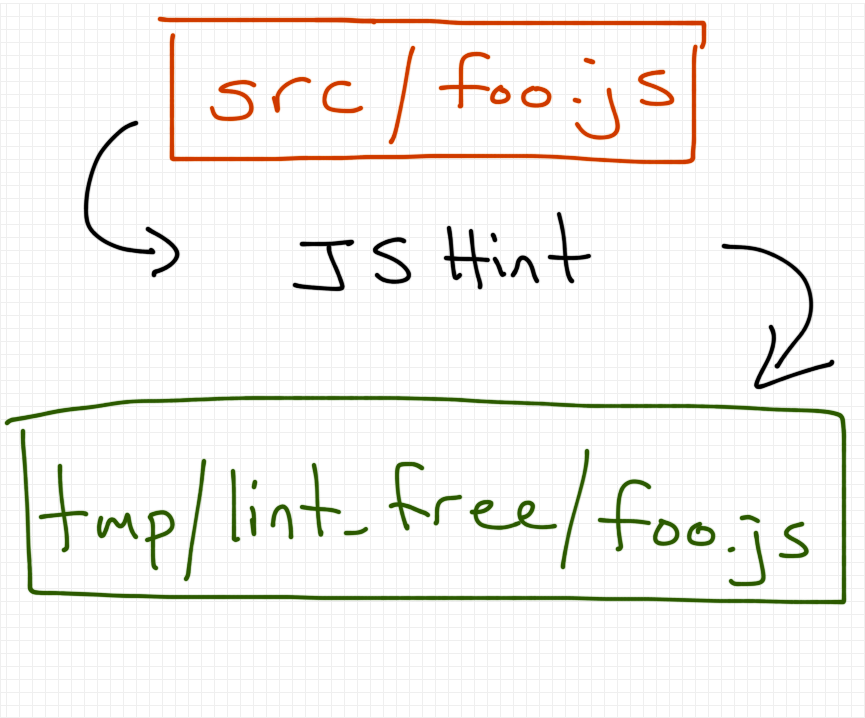 src/foo.js
JSHint
tmp/lint_free/foo.js